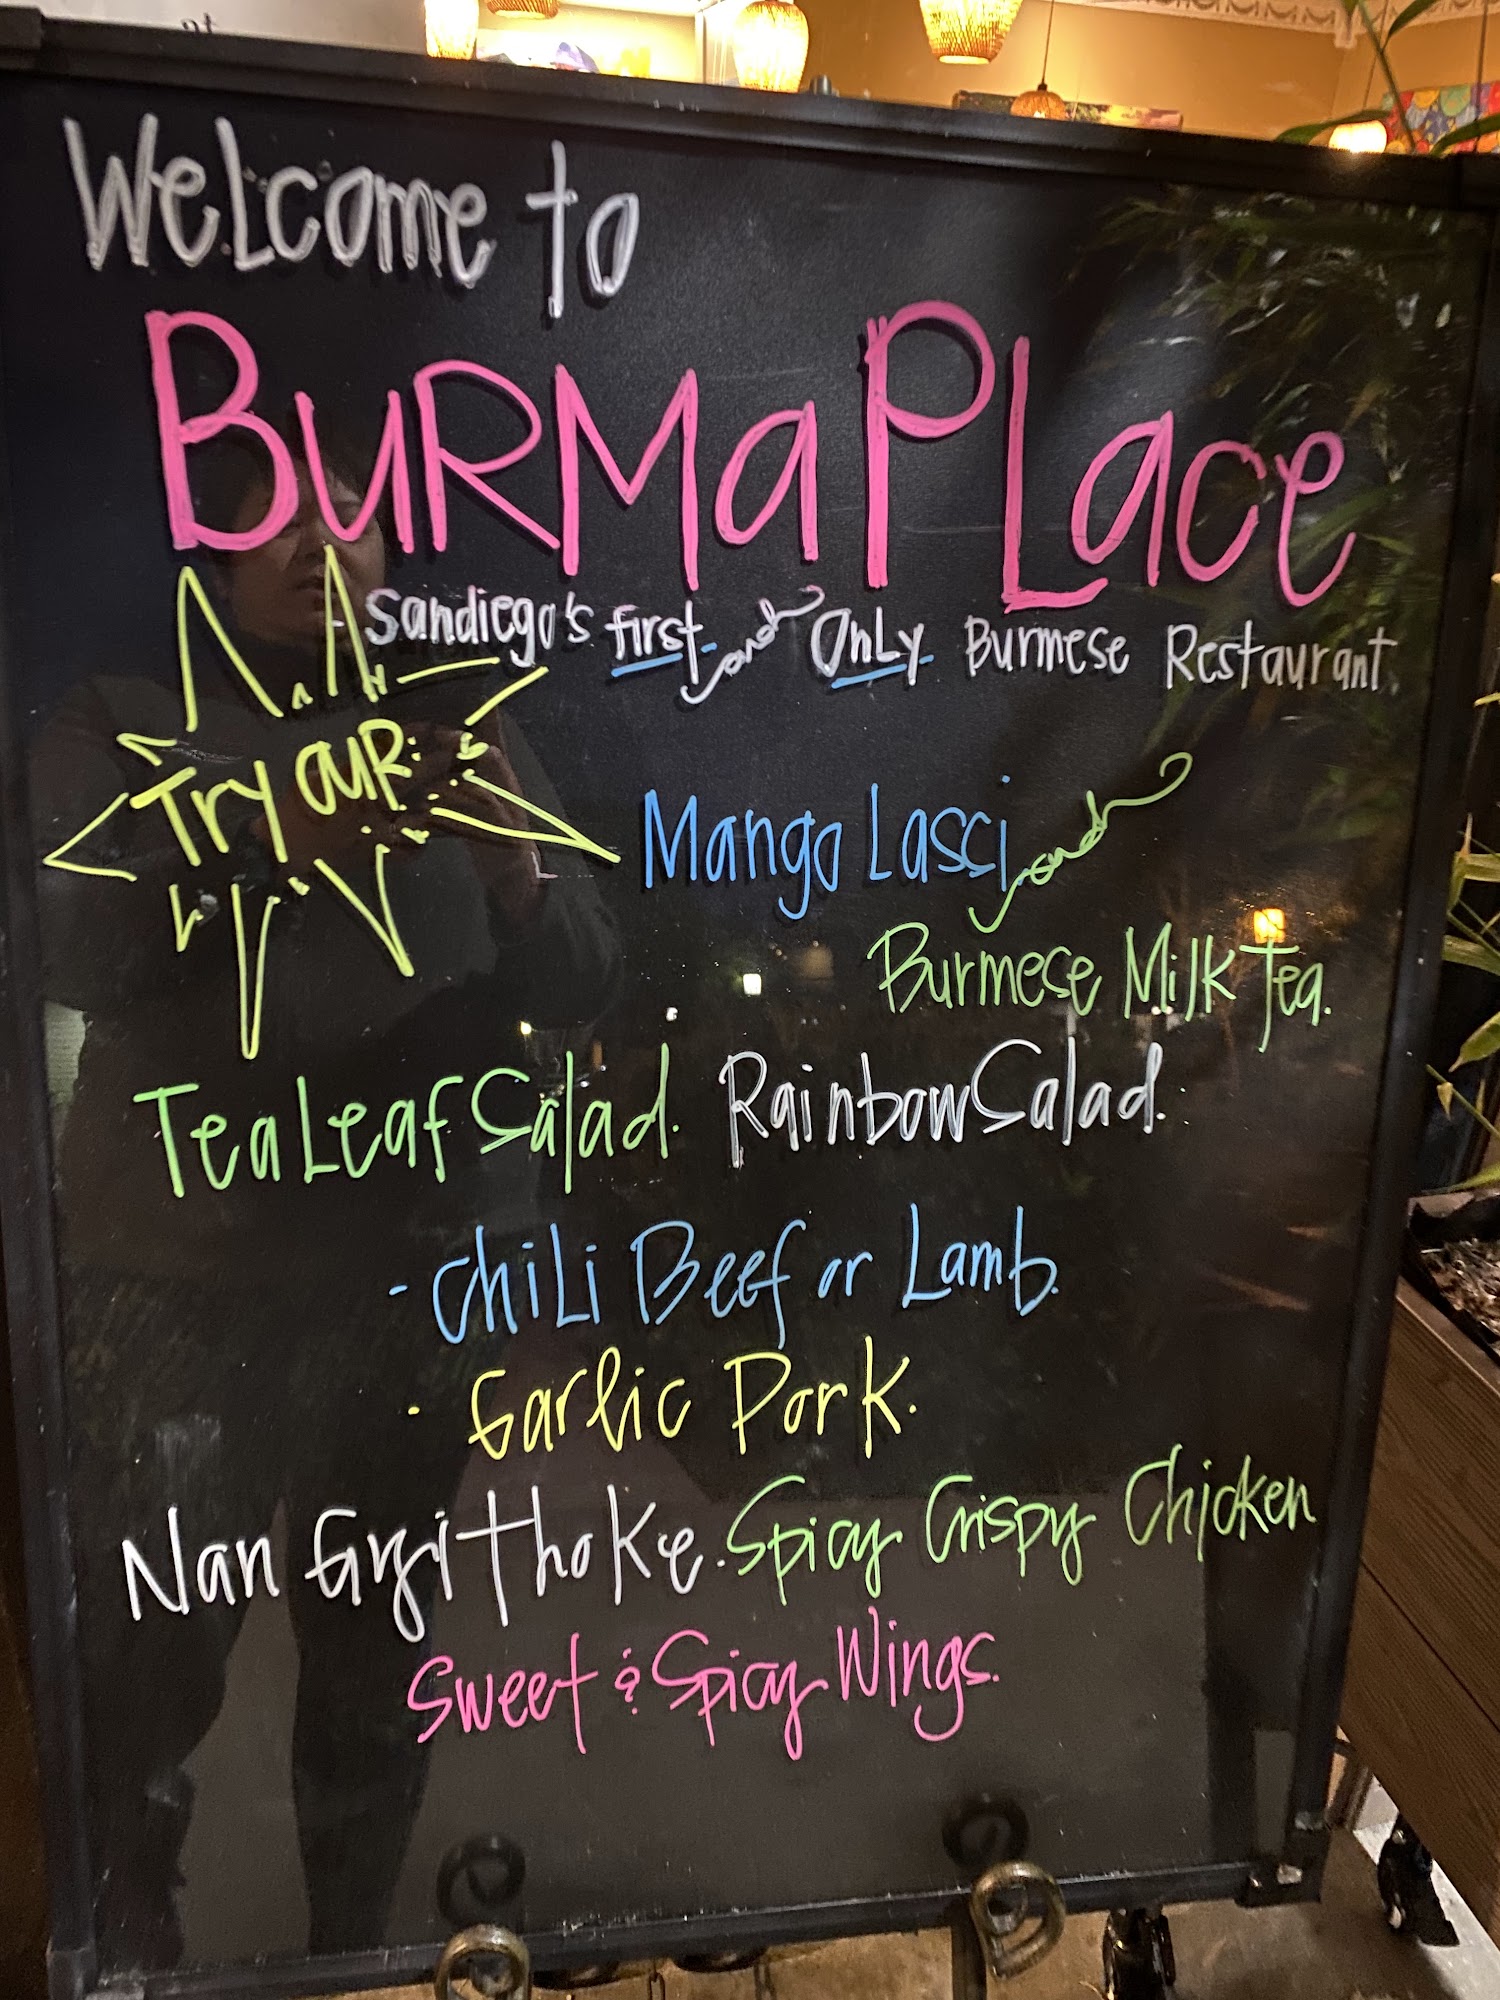 Welcome to
BuRMa PLace
Sandiego's first and Only Burmese Restaurant.
Try our:
Mango Lassi and
Burmese Milk Tea.
Tea Leaf Salad. Rainbow Salad.
- Chili Beef or Lamb.
· Garlic Pork.
Nan Gyi Thoke. Spicy Crispy Chicken
Sweet & Spicy Wings.